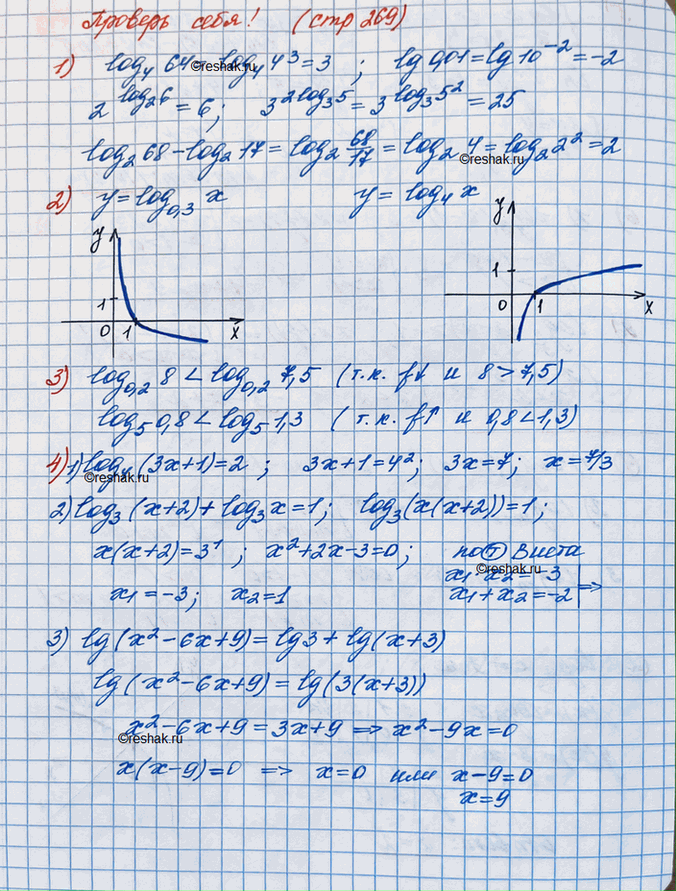 Проверь себя! (стр 269)
1) log₄ 64 = log₄ 4³ = 3 ; lg 0,01 = lg 10⁻² = -2
©reshak.ru
2^(log₂6) = 6; 3^(2log₃5) = 3^(log₃5²) = 25
log₂ 68 - log₂ 17 = log₂ 68/17 = log₂ 4 = log₂ 2² = 2
©reshak.ru
2) y = log₀,₃ x y = log₄ x
y 1 0 1 x
y 1 0 1 x
3) log₀,₂ 8 < log₀,₂ 7,5 (т.к. f↓ и 8 > 7,5)
log₅ 0,8 < log₅ 1,3 (т.к. f↑ и 0,8 < 1,3)
4) 1) log₄ (3x+1) = 2 ; 3x+1 = 4²; 3x = 7; x = 7/3
©reshak.ru
2) log₃ (x+2) + log₃ x = 1; log₃ (x(x+2)) = 1;
x(x+2) = 3¹ ; x²+2x-3=0; по Т Виета
©reshak.ru
x₁·x₂ = -3
x₁ = -3; x₂ = 1 x₁+x₂ = -2 | =>
3) lg (x² - 6x + 9) = lg 3 + lg (x+3)
lg (x² - 6x + 9) = lg (3(x+3))
x² - 6x + 9 = 3x + 9 => x² - 9x = 0
©reshak.ru
x(x-9) = 0 => x = 0 или x-9=0
x = 9